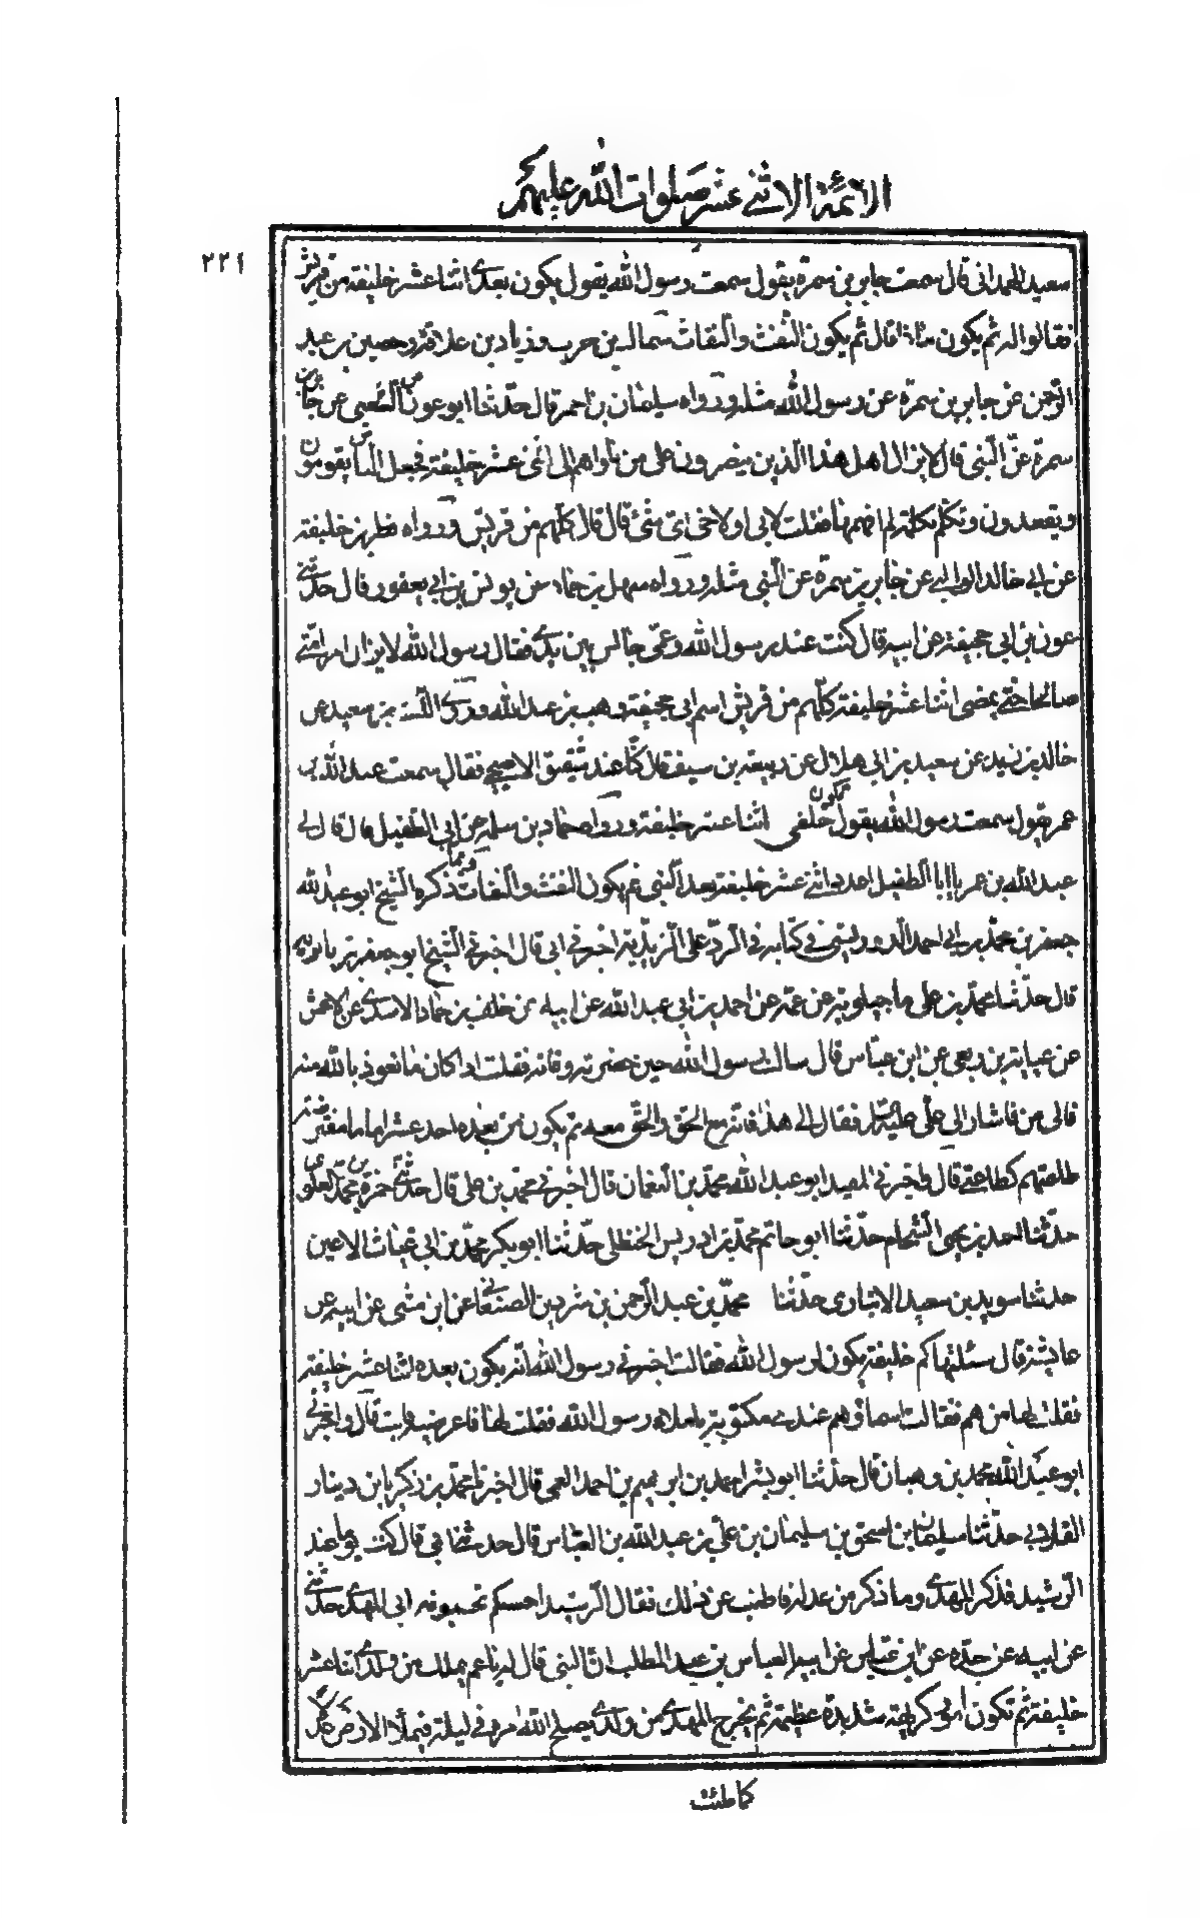 الائمة الاثنى عشر صلوات الله عليهم
٢٢١
سعيد الهمداني قال سمعت جابر بن سمرة يقول سمعت رسول الله يقول يكون بعدى اثنا عشر خليفة من قريش
فقالوا له ثم يكون ماذا قال ثم يكون النفث والنقاث سماك بن حرب وزياد بن علاقة وحصين بن عبد
الرحمن عن جابر بن سمرة عن رسول الله مثله ورواه سليمان بن احمر قال حدثنا ابو عون عن الشعبى عن جابر بن
سمرة عن النبى قال لا يزال اهل هذا الدين ينصرون على من ناواهم الى اثنى عشر خليفة فجعل الناس يقومون
ويقعدون وتكلم بكلمة لم افهمها فقلت لابى او لاخى اى شئ قال قال كلهم من قريش ورواه فطر بن خليفة
عن ابى خالد الوالبى عن جابر بن سمرة عن النبى مثله ورواه سهل بن حماد عن يونس بن ابى يعفور قال حدثنى
عون بن ابى جحيفة عن ابيه قال كنت عند رسول الله وعمى جالس بين يدى فقال رسول الله لا يزال امر امتى
صالحا حتى يمضى اثنا عشر خليفة كلهم من قريش اسم ابى جحيفة وهب بن عبد الله وروى الليث بن سعيد عن
خالد بن زيد عن سعيد بن ابى هلال عن ربيعة بن سيف قال كنا عند شقيق الاصبحى فقال سمعت عبد الله بن
عمر يقول سمعت رسول الله يقول يكون خلفى اثنا عشر خليفة ورواه حماد بن سلمة عن ابى الطفيل قال قال لى
عبد الله بن عمر يا ابا الطفيل اعدد اثنى عشر خليفة بعد النبى ثم يكون النفث والنقاث ومما ذكره الشيخ ابو عبد الله
جعفر بن محمد بن احمد الدوريستى فى كتابه فى الرد على الزيدية اخبرنى ابى قال اخبرنى الشيخ ابو جعفر بن بابويه
قال حدثنا محمد بن على ماجيلويه عن عمه عن احمد بن ابى عبد الله عن ابيه عن خلف بن حماد الاسدى عن الاعمش
عن عباية بن ربعى عن ابن عباس قال سالت رسول الله حين حضرته وفاته فقلت اذا كان ما نعوذ بالله منه
فالى من فاشار الى على فقال الى هذا فانه مع الحق والحق معه ثم يكون من بعده احد عشر اماما مفترضة
طاعتهم كطاعتى قال واخبرنى المفيد ابو عبد الله محمد بن النعمان قال اخبرنى محمد بن على قال حدثنى حمزة بن محمد العلوى
حدثنا احمد بن يحيى الشحام حدثنا ابو حاتم محمد بن ادريس الحنظلى حدثنا ابو بكر محمد بن ابى غياث الاعين
حدثنا سويد بن سعيد الانبارى حدثنا محمد بن عبد الرحمن بن شردين الصنعانى عن ابن مثنى عن ابيه عن
عايشة قال سئلتها كم خليفة يكون لرسول الله فقالت اخبرنى رسول الله انه يكون بعده اثنا عشر خليفة
فقلت لها من هم فقالت اسماؤهم عندى مكتوبة باملاء رسول الله فقلت لها فاعرضيه فابت قال واخبرنى
ابو عبد الله محمد بن وهبان قال حدثنا ابو بشر احمد بن ابرهيم بن احمد العمى قال اخبرنا محمد بن زكريا بن دينار
الغلابى حدثنا سليمان بن اسحق بن سليمان بن على بن عبد الله بن العباس قال حدثنا ابى قال كنت يوما عند
الرشيد فذكر المهدى وما ذكر من عدله فاطنب عن ذلك فقال الرشيد احسبكم تحسبونه ابى المهدى حدثنى
عن ابيه عن جده عن ابن عباس عن ابيه العباس بن عبد المطلب ان النبى قال له يا عم يملك من ولدى اثنا عشر
خليفة ثم تكون امور كريهة شديدة عظيمة ثم يخرج المهدى من ولدى يصلح الله امره فى ليلة فيملأ الارض عدلا
كما ملئت